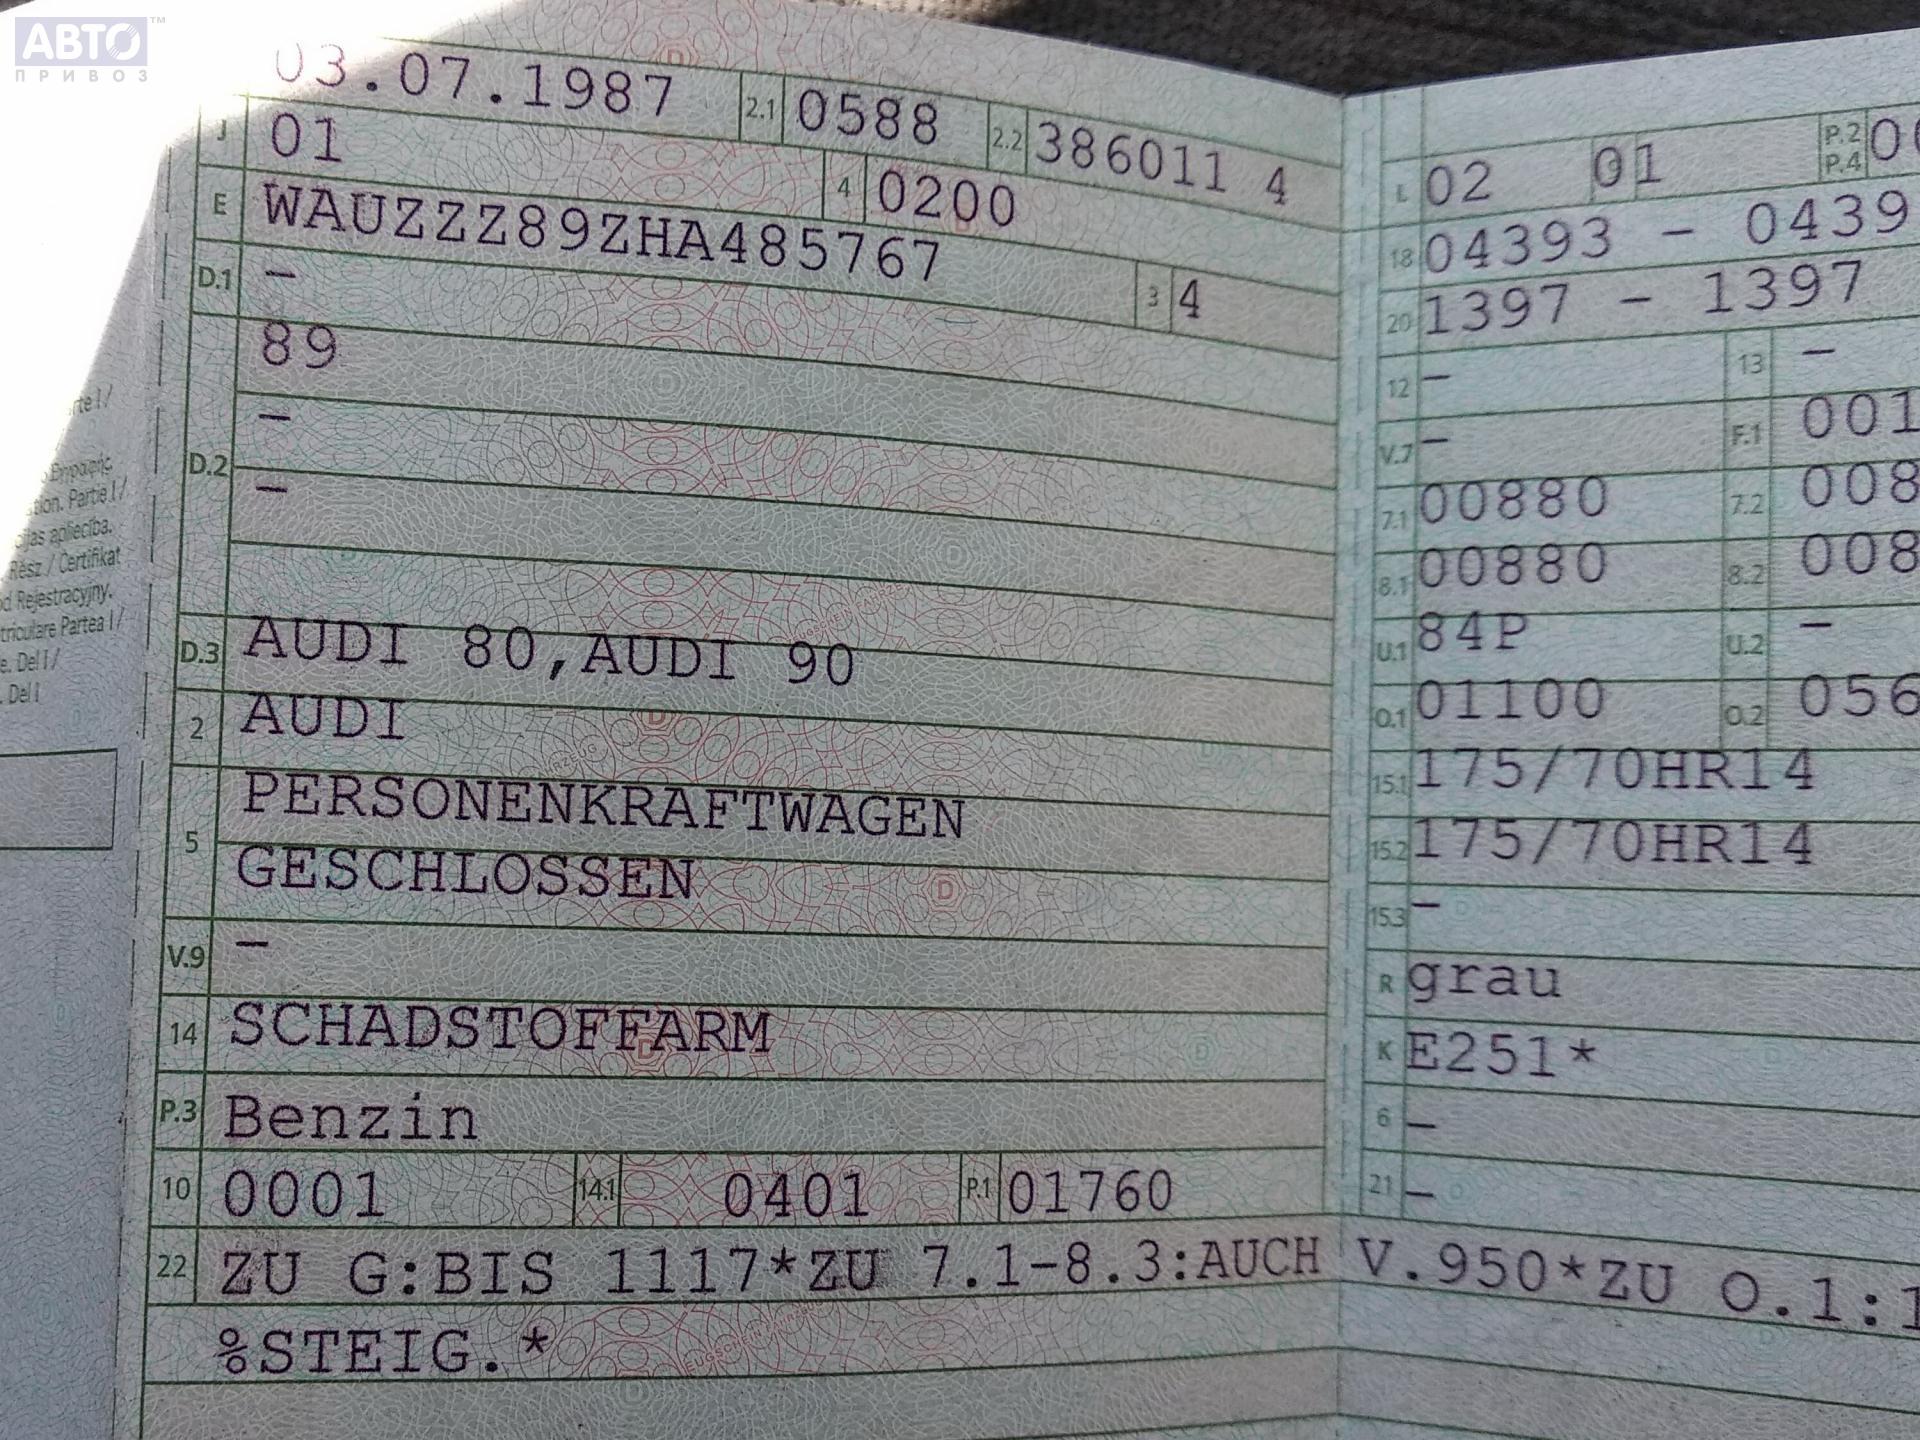 АВТО™
ПРИВОЗ
03.07.1987 2.1 0588 2.2 386011 4
J 01 4 0200
E WAUZZZ89ZHA485767 3 4
D.1 –
89
D.2 –
–
D.3 AUDI 80,AUDI 90
2 AUDI
5 PERSONENKRAFTWAGEN
GESCHLOSSEN
V.9 –
14 SCHADSTOFFARM
P.3 Benzin
10 0001 14.1 0401 P.1 01760
22 ZU G:BIS 1117*ZU 7.1-8.3:AUCH V.950*ZU O.1:1
%STEIG.*
L 02 01 P.2 P.4 0
18 04393 – 0439
20 1397 – 1397
12 – 13 –
V.7 – F.1 001
7.1 00880 7.2 008
8.1 00880 8.2 008
U.1 84P U.2 –
O.1 01100 O.2 056
15.1 175/70HR14
15.2 175/70HR14
15.3 –
R grau
K E251*
6 –
21 –
rte I /
tion. Partie I /
apliecība.
Rész / Certifikat
Rejestracyjny.
Partea I /
e. Del I /
. Del I